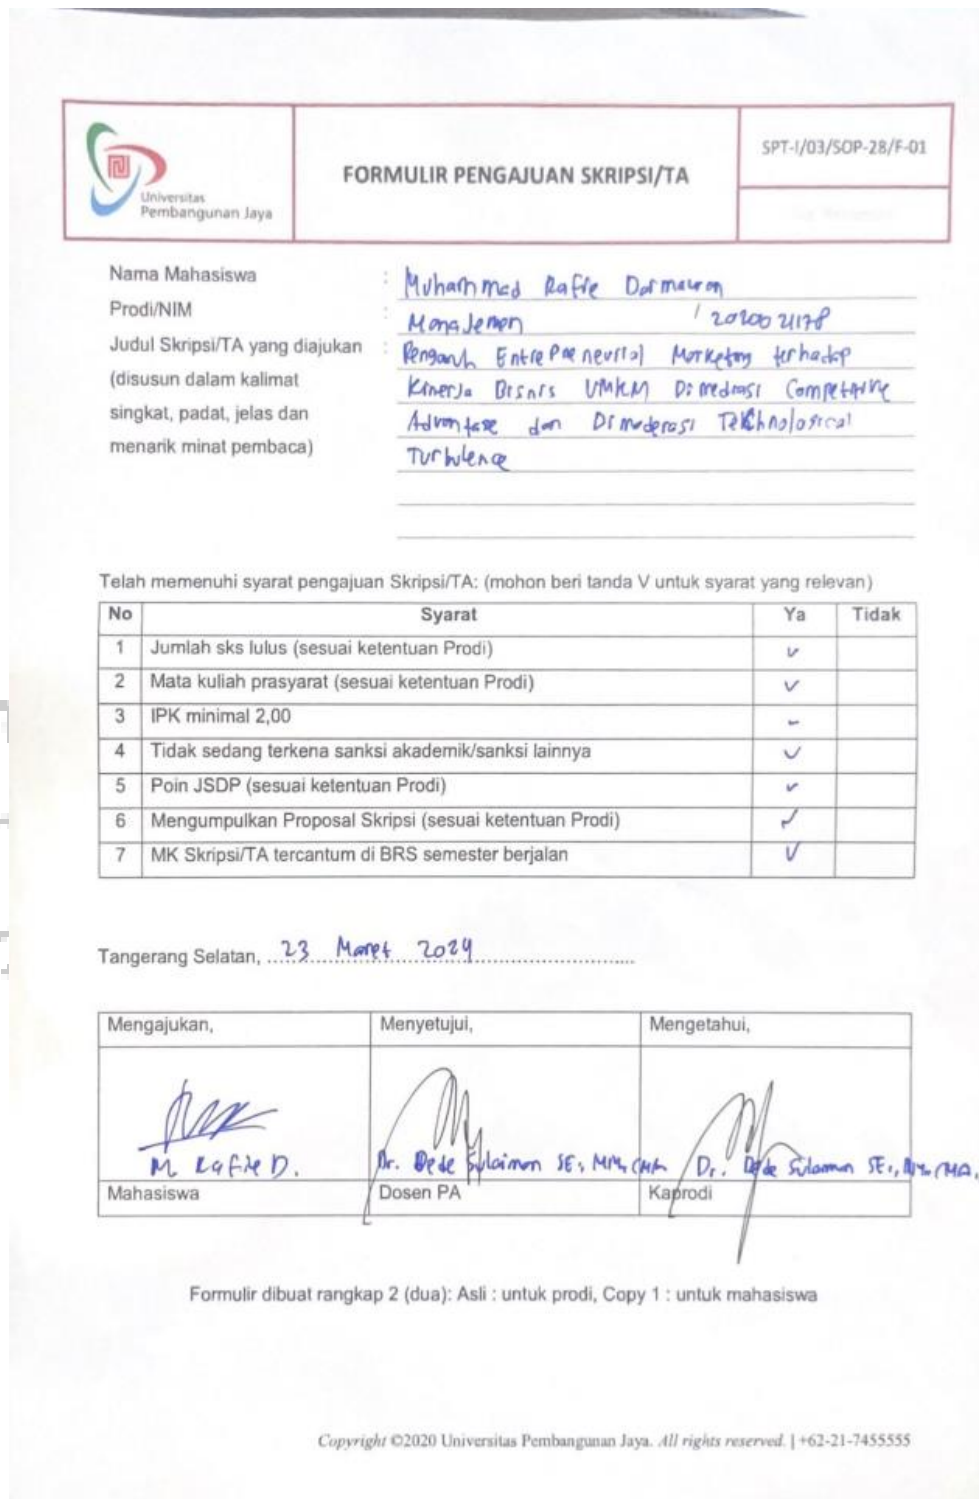 Universitas
Pembangunan Jaya
FORMULIR PENGAJUAN SKRIPSI/TA
SPT-I/03/SOP-28/F-01
Nama Mahasiswa : Muhammad Rafie Darmawan
Prodi/NIM : Manajemen / 2020021178
Judul Skripsi/TA yang diajukan : Pengaruh Entrepreneurial Marketing terhadap
(disusun dalam kalimat Kinerja Bisnis UMKM Dimediasi Competitive
singkat, padat, jelas dan Advantage dan Dimoderasi Technological
menarik minat pembaca) Turbulence
Telah memenuhi syarat pengajuan Skripsi/TA: (mohon beri tanda V untuk syarat yang relevan)
No Syarat Ya Tidak
1 Jumlah sks lulus (sesuai ketentuan Prodi) ✓
2 Mata kuliah prasyarat (sesuai ketentuan Prodi) ✓
3 IPK minimal 2,00 ✓
4 Tidak sedang terkena sanksi akademik/sanksi lainnya ✓
5 Poin JSDP (sesuai ketentuan Prodi) ✓
6 Mengumpulkan Proposal Skripsi (sesuai ketentuan Prodi) ✓
7 MK Skripsi/TA tercantum di BRS semester berjalan ✓
Tangerang Selatan, 23 Maret 2024
Mengajukan, Menyetujui, Mengetahui,
M Rafie D. Dr. Dede Sulaiman SE., MM, CMA Dr. Dede Sulaiman SE., MM, CMA.
Mahasiswa Dosen PA Kaprodi
Formulir dibuat rangkap 2 (dua): Asli : untuk prodi, Copy 1 : untuk mahasiswa
Copyright ©2020 Universitas Pembangunan Jaya. All rights reserved. | +62-21-7455555